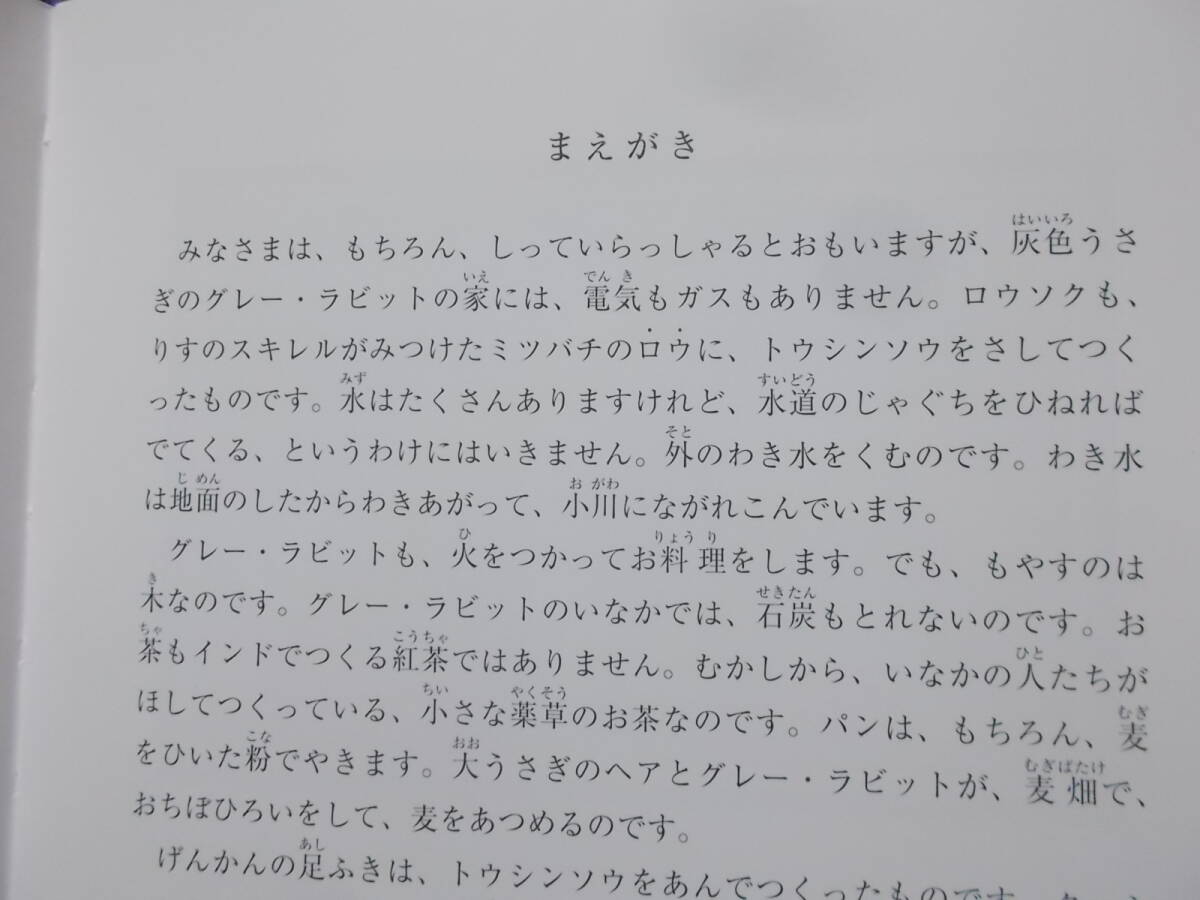 まえがき
みなさまは、もちろん、しっていらっしゃるとおもいますが、灰色うさ
ぎのグレー・ラビットの家には、電気もガスもありません。ロウソクも、
りすのスキレルがみつけたミツバチのロウに、トウシンソウをさしてつく
ったものです。水はたくさんありますけれど、水道のじゃぐちをひねれば
でてくる、というわけにはいきません。外のわき水をくむのです。わき水
は地面のしたからわきあがって、小川にながれこんでいます。
グレー・ラビットも、火をつかってお料理をします。でも、もやすのは
木なのです。グレー・ラビットのいなかでは、石炭もとれないのです。お
茶もインドでつくる紅茶ではありません。むかしから、いなかの人たちが
ほしてつくっている、小さな薬草のお茶なのです。パンは、もちろん、麦
をひいた粉でやきます。大うさぎのヘアとグレー・ラビットが、麦畑で、
おちぼひろいをして、麦をあつめるのです。
げんかんの足ふきは、トウシンソウをあんでつくったものです。